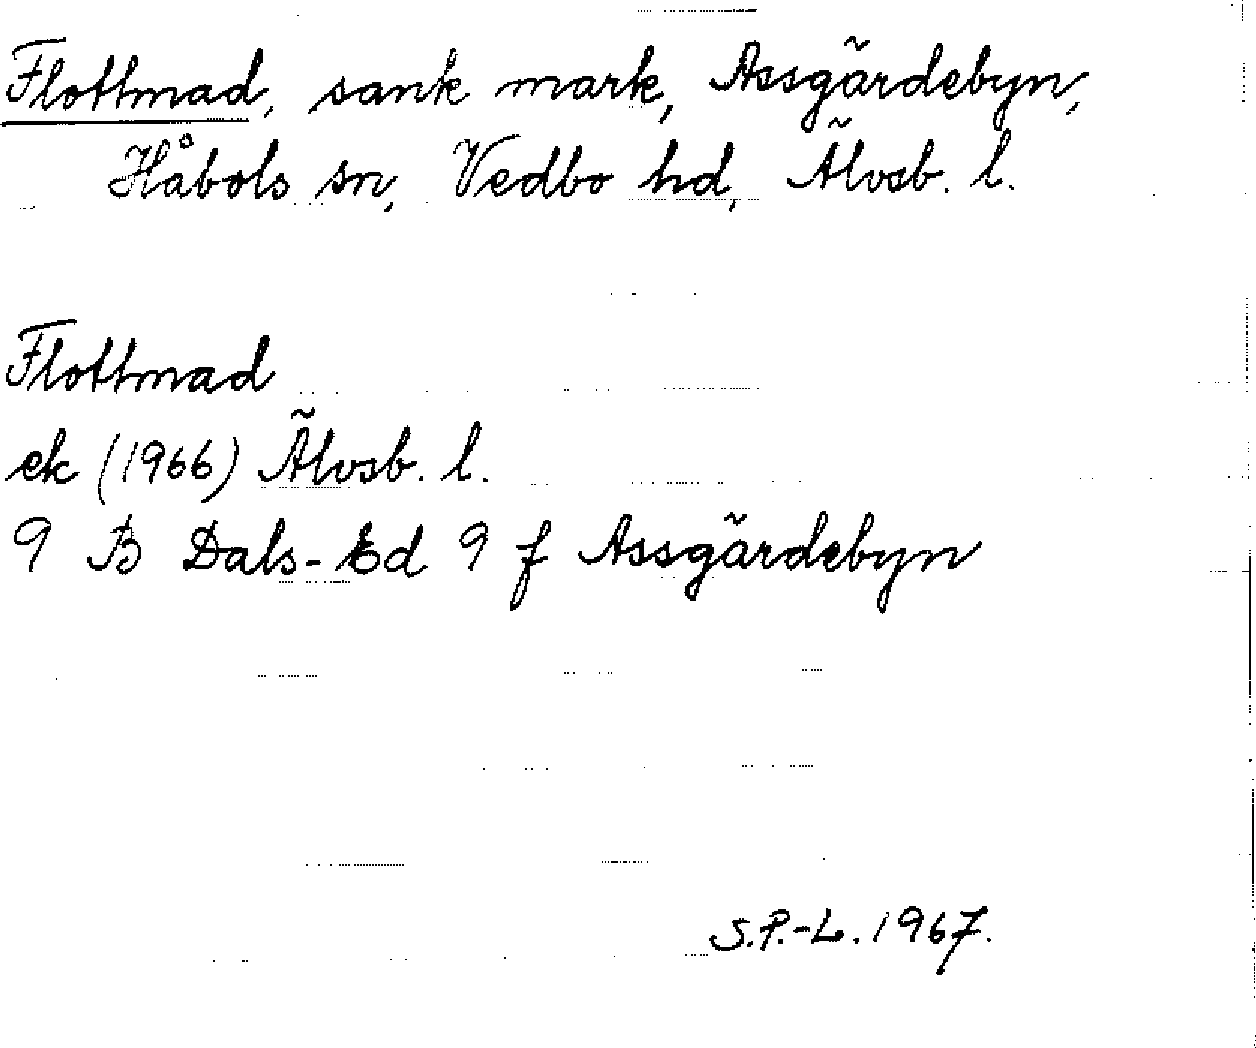 Flottmad, sank mark, Assgärdebyn,
Håbols sn, Vedbo hd, Älvsb. l.
Flottmad
ek (1966) Älvsb. l.
9 B Dals-Ed 9 f Assgärdebyn
S.P.-L. 1967.